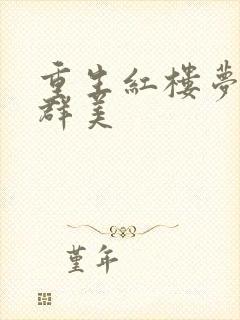 重生紅樓夢
群美
堇年